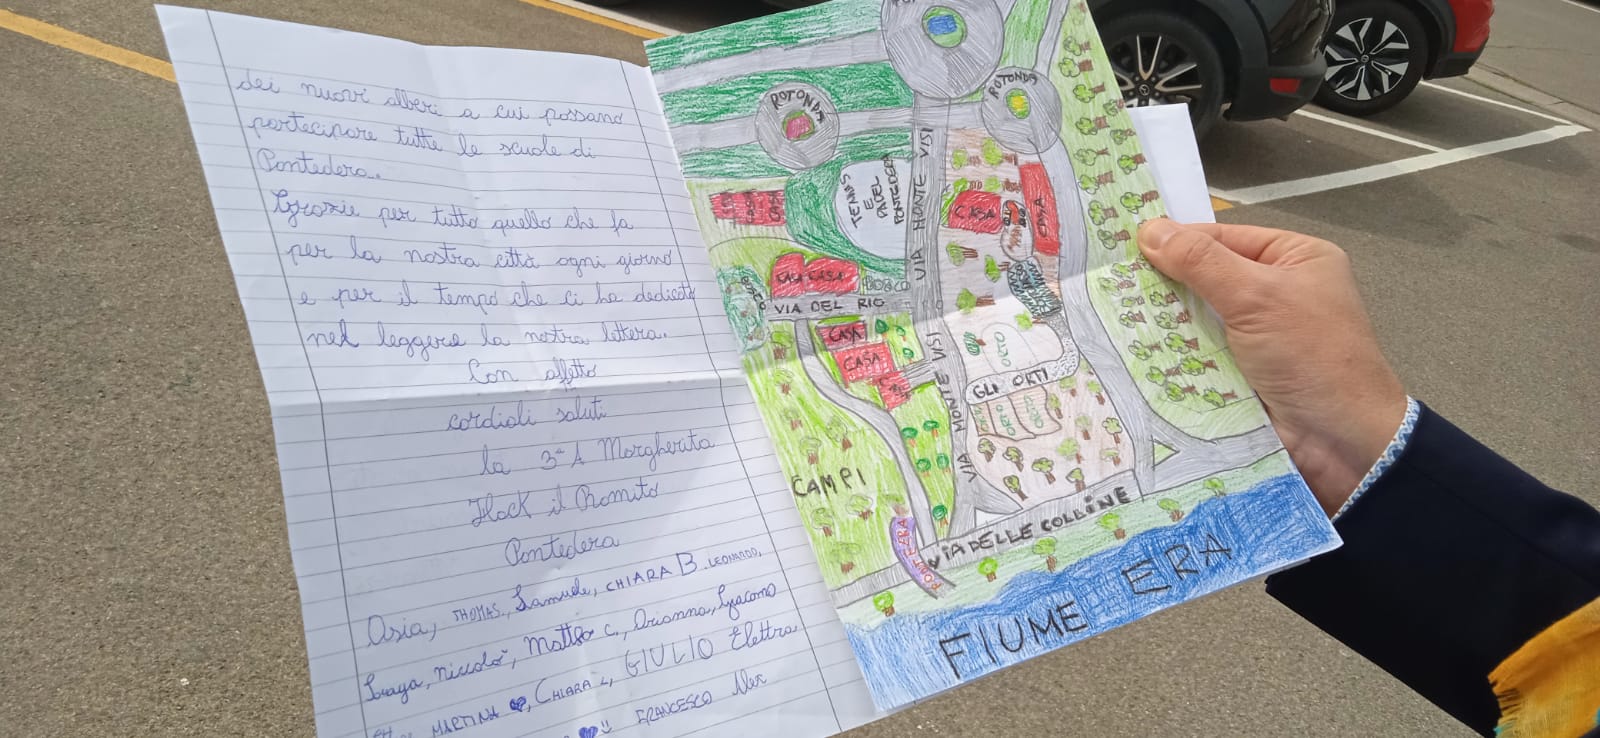 dei nuovi alberi a cui possano
partecipare tutte le scuole di
Pontedera.
Grazie per tutto quello che fa
per la nostra città ogni giorno
e per il tempo che ci ha dedicato
nel leggere la nostra lettera.
Con affetto
cordiali saluti
la 3ª A Margherita
Hack il Romito
Pontedera
Asia, THOMAS, Samuele, CHIARA B. LEONARDO,
Soraya, Niccolò, Matteo C., Arianna, Giacomo
MARTINA, CHIARA L, GIULIO Elettra
FRANCESCO Alex
ROTONDA
ROTONDA
TENNIS
E
PADEL
PONTEDERA
VIA MONTE VISI
CASA
CASA
CASA CASA
BOSCO
BOSCO
VIA DEL RIO
CASA
CASA
VIA MONTE VISI
ORTO
GLI ORTI
ORTO
ORTO
ORTO
CAMPI
PONTE ERA
VIA DELLE COLLINE
FIUME ERA